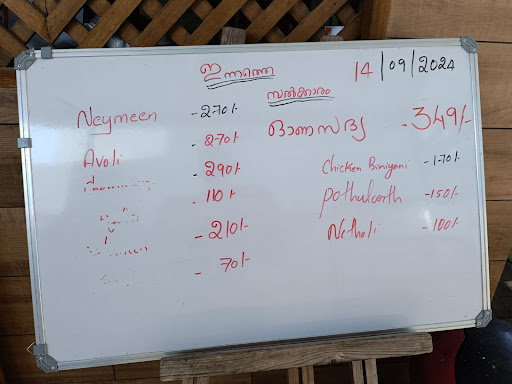 ഇന്നത്തെ
14/09/2024
സൽക്കാരം
Neymeen - 270/-
Avoli - 270/-
- 290/-
- 110/-
- 210/-
- 70/-
ഓണസദ്യ - 349/-
Chicken Biriyani - 170/-
Pothularth - 150/-
Netholi - 100/-